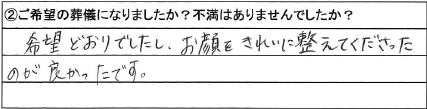 ②ご希望の葬儀になりましたか？不満はありませんでしたか？
希望どおりでしたし、お顔をきれいに整えてくださった
のが良かったです。